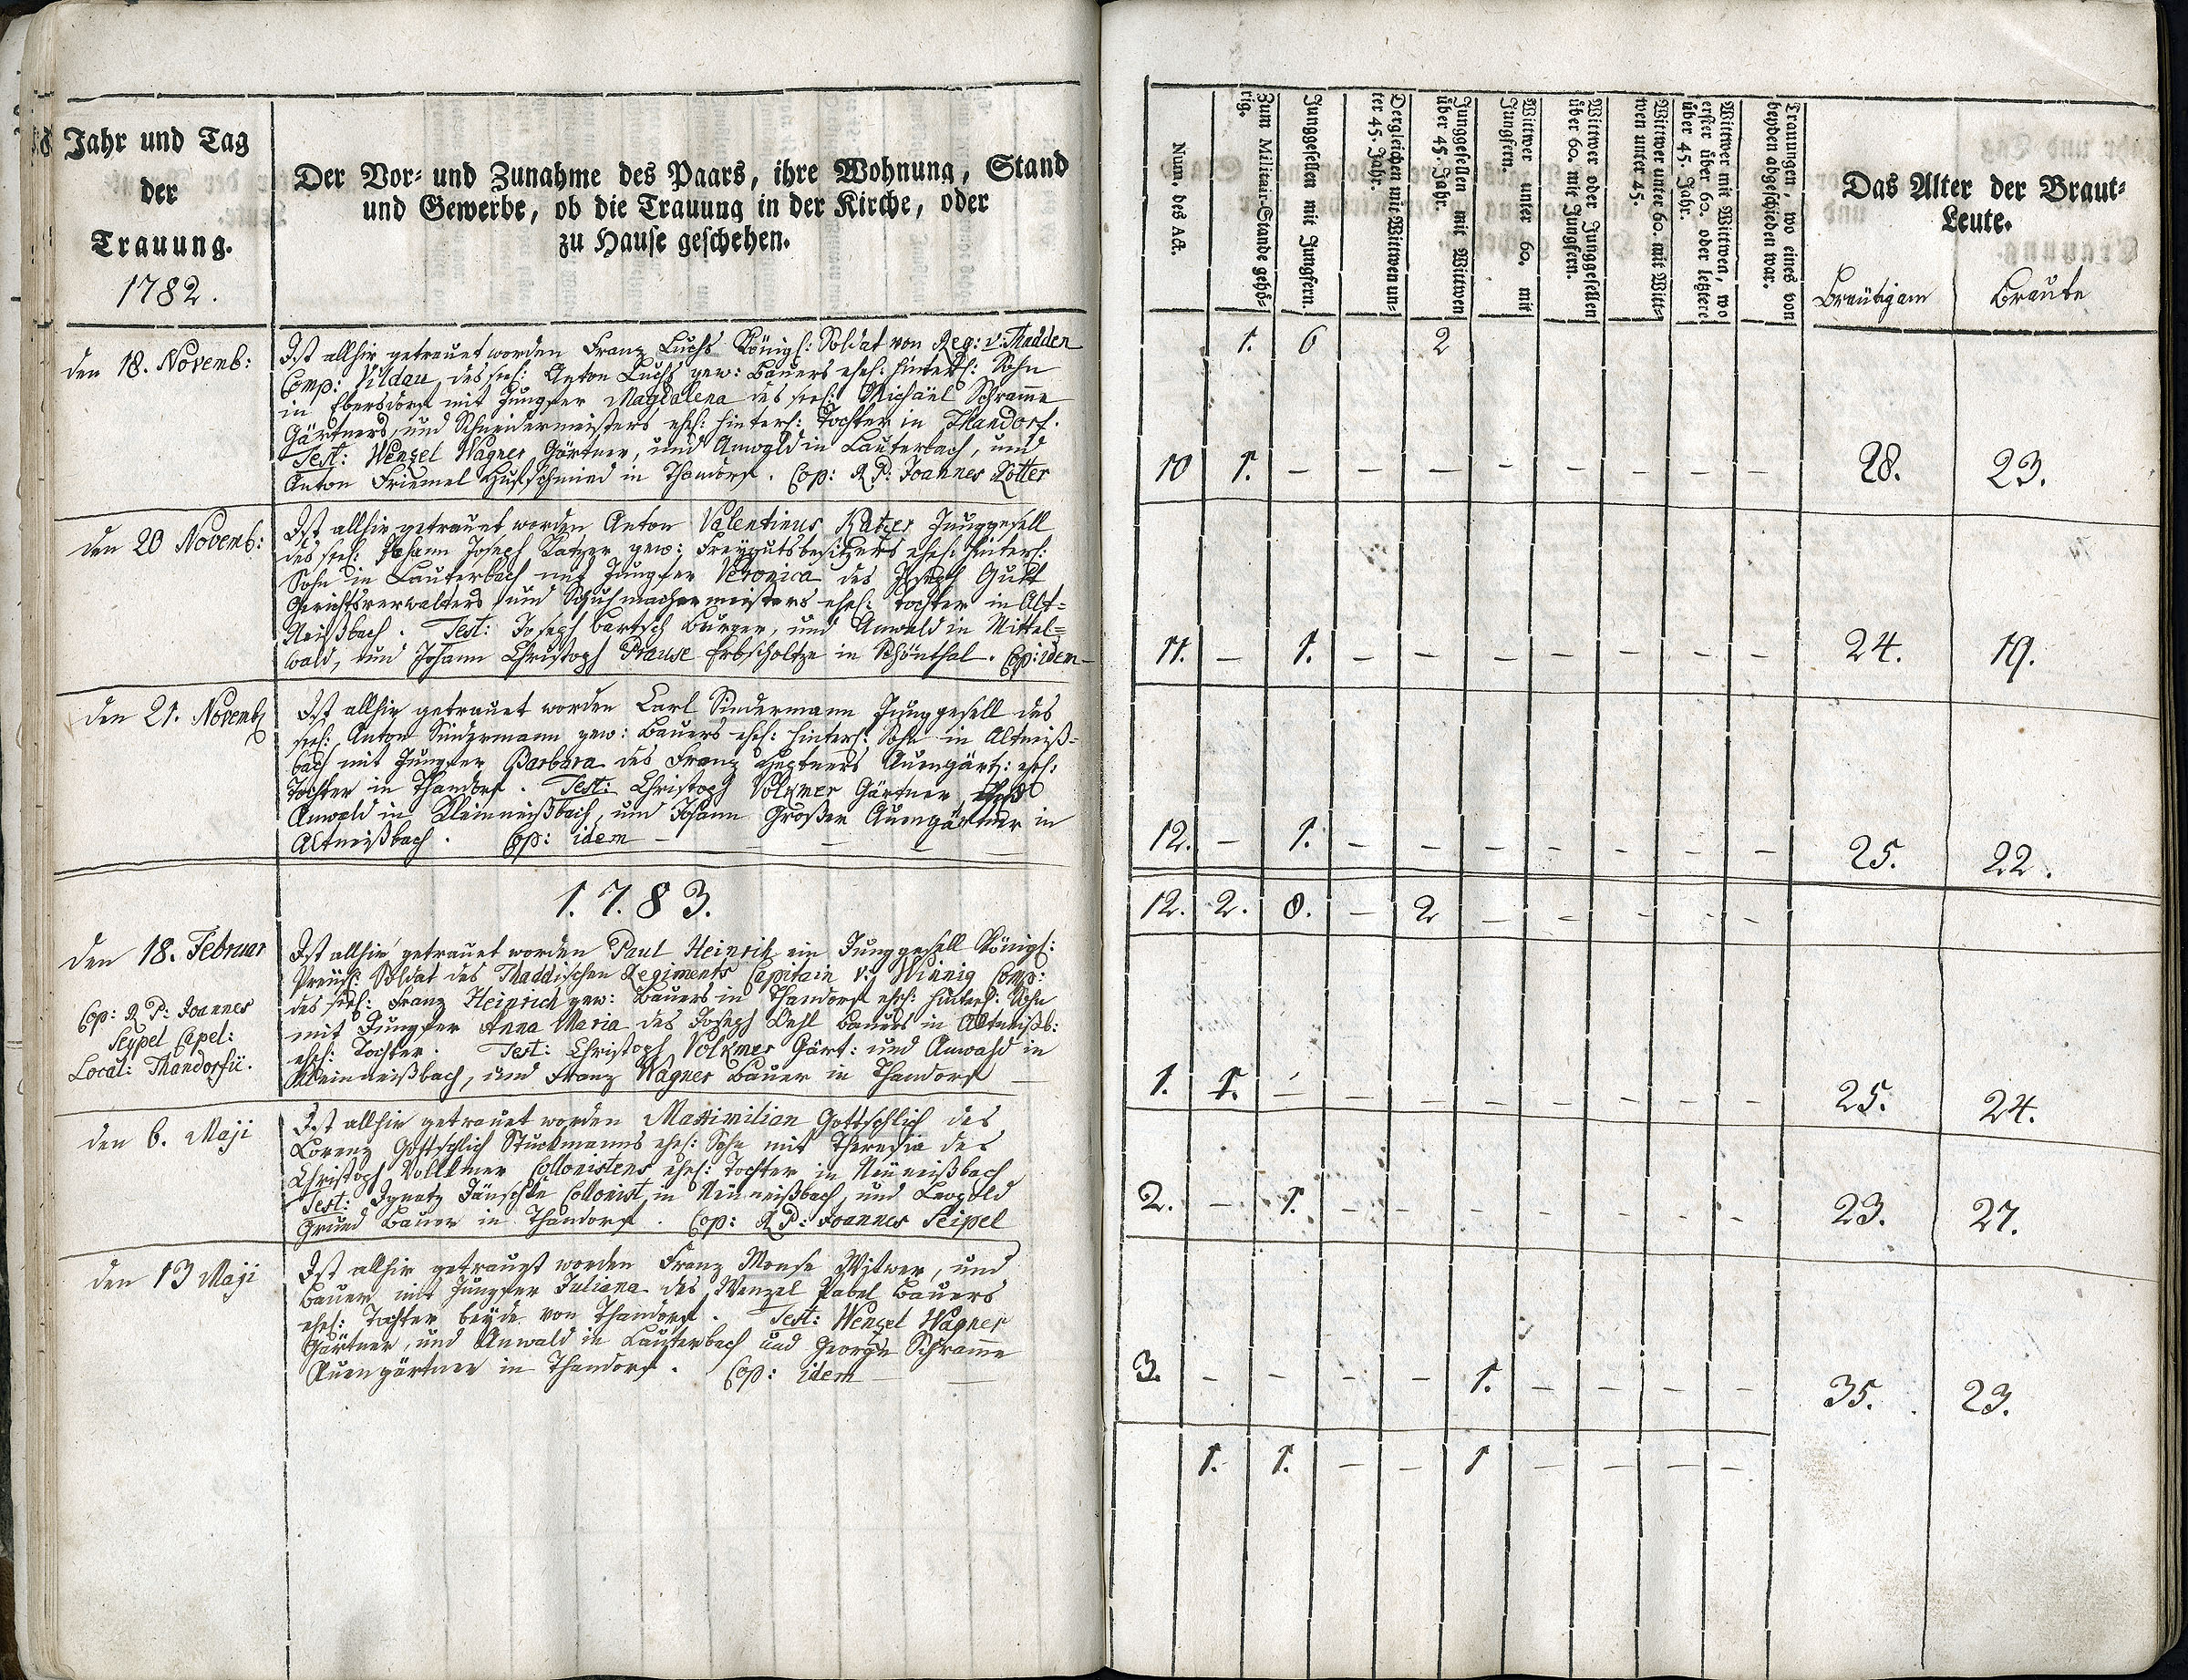 Jahr und Tag
der
Trauung.
1782.
Der Vor- und Zunahme des Paars, ihre Wohnung, Stand
und Gewerbe, ob die Trauung in der Kirche, oder
zu Hause geschehen.
den 18. Novemb:
Ist allhir getrauet worden Franz Luchs Königl: Soldat von Reg: v: Thadden
Comp: des seel: Anton Luchs gew: Bauers ehel: hinterl: Sohn
in Ebersdorf mit Jungfer Magdalena des seel: Michäel Schramme
Gärtners, und Schneidermeisters ehel: hinterl: Tochter in Thandorf.
Test: Wenzel Wagner Gärtner, und Anwald in Lauterbach, und
Anton Friemel Hufschmied in Thandorf. Cop: R. P: Joannes Rotter
den 20 Novemb:
Ist allhir getrauet worden Anton Valentinus Katzer Junggesell
des seel: Johann Joseph Katzer gew: Freygutsbesitzers ehel: hinterl:
Sohn in Lauterbach mit Jungfer Veronica des Joseph
Gerichtsverwalters und Schuhmachermeisters ehel: Tochter in Alt=
Neißbach. Test: Joseph Bartsch Burger, und Anwald in Mittel=
wald, und Johann Christoph Prause Erbscholtze in Schönthal. Cop: idem
den 21. Novemb
Ist allhir getrauet worden Carl Sindermann Junggesell des
seel: Anton Sindermann gew: Bauers ehel: hinterl: Sohn in Altneiß=
bach mit Jungfer Barbara des Franz Heptners Auengärt: ehel:
Tochter in Thandorf. Test: Christoph Volkmer Gärtner,
Anwald in Kleinneißbach, und Johann Großer Auengärtner in
Altneißbach. Cop: idem
1.7.83.
den 18. Februar
Cop: R P: Joannes
Seypel Capel:
Local: Thandorfii.
Ist allhir getrauet worden Paul Heinrich ein Junggesell Königl:
Preüß: Soldat des Thaddischen Regiments Capitain v: Winnig Comp:
des seel: Franz Heinrich gew: Bauers in Thandorf ehel: hinterl: Sohn
mit Jungfer Anna Maria des Joseph Bauers in Altneißb:
ehel: Tochter. Test: Christoph Volkmer Gärt: und Anwald in
Kleinneißbach, und Franz Wagner Bauer in Thandorf
den 6. Maji
Ist allhir getrauet worden Maximilian Gottschlich des
Lorenz Gottschlich Stuckmanns ehel: Sohn mit Theresia des
Christoph Vollkmer Collonistens ehel: Tochter in Neuneißbach
Test: Ignatz Jänschke Collonist in Neuneißbach, und Leopold
Grund Bauer in Thandorf. Cop: R P: Joannes Seipel
den 13 Maji
Ist allhir getrauet worden Franz Monse Witwer, und
Bauer mit Jungfer Juliana des Wenzel Pabel Bauers
ehel: Tochter beyde von Thandorf. Test: Wenzel Wagner
Gärtner, und Anwald in Lauterbach und George Schramme
Auengärtner in Thandorf. Cop: idem
Num. des Act.
Zum Militair-Stande gehö-
rig.
Junggesellen mit Jungfern.
Dergleichen mit Wittwen un-
ter 45. Jahr.
Junggesellen mit Wittwen
über 45. Jahr.
Wittwer unter 60. mit
Jungfern.
Wittwer oder Junggesellen
über 60. mit Jungfern.
Wittwer unter 60. mit Witt-
wen unter 45.
Wittwer mit Wittwen, wo
erster über 60. oder letztere
über 45. Jahr.
Trauungen, wo eines von
beyden abgeschieden war.
Das Alter der Braut-
Leute.
Bräutigam
Braute
1. 6 2
10 1. – – – – – – – – 28. 23.
11. – 1. – – – – – – – 24. 19.
12. – 1. – – – – – – – 25. 22.
12. 2. 8. – 2 – – – – –
1. 1. – – – – – – – – 25. 24.
2. – 1. – – – – – – – 23. 27.
3. – – – – 1. – – – – 35. 23.
1. 1. – – 1 – – – –